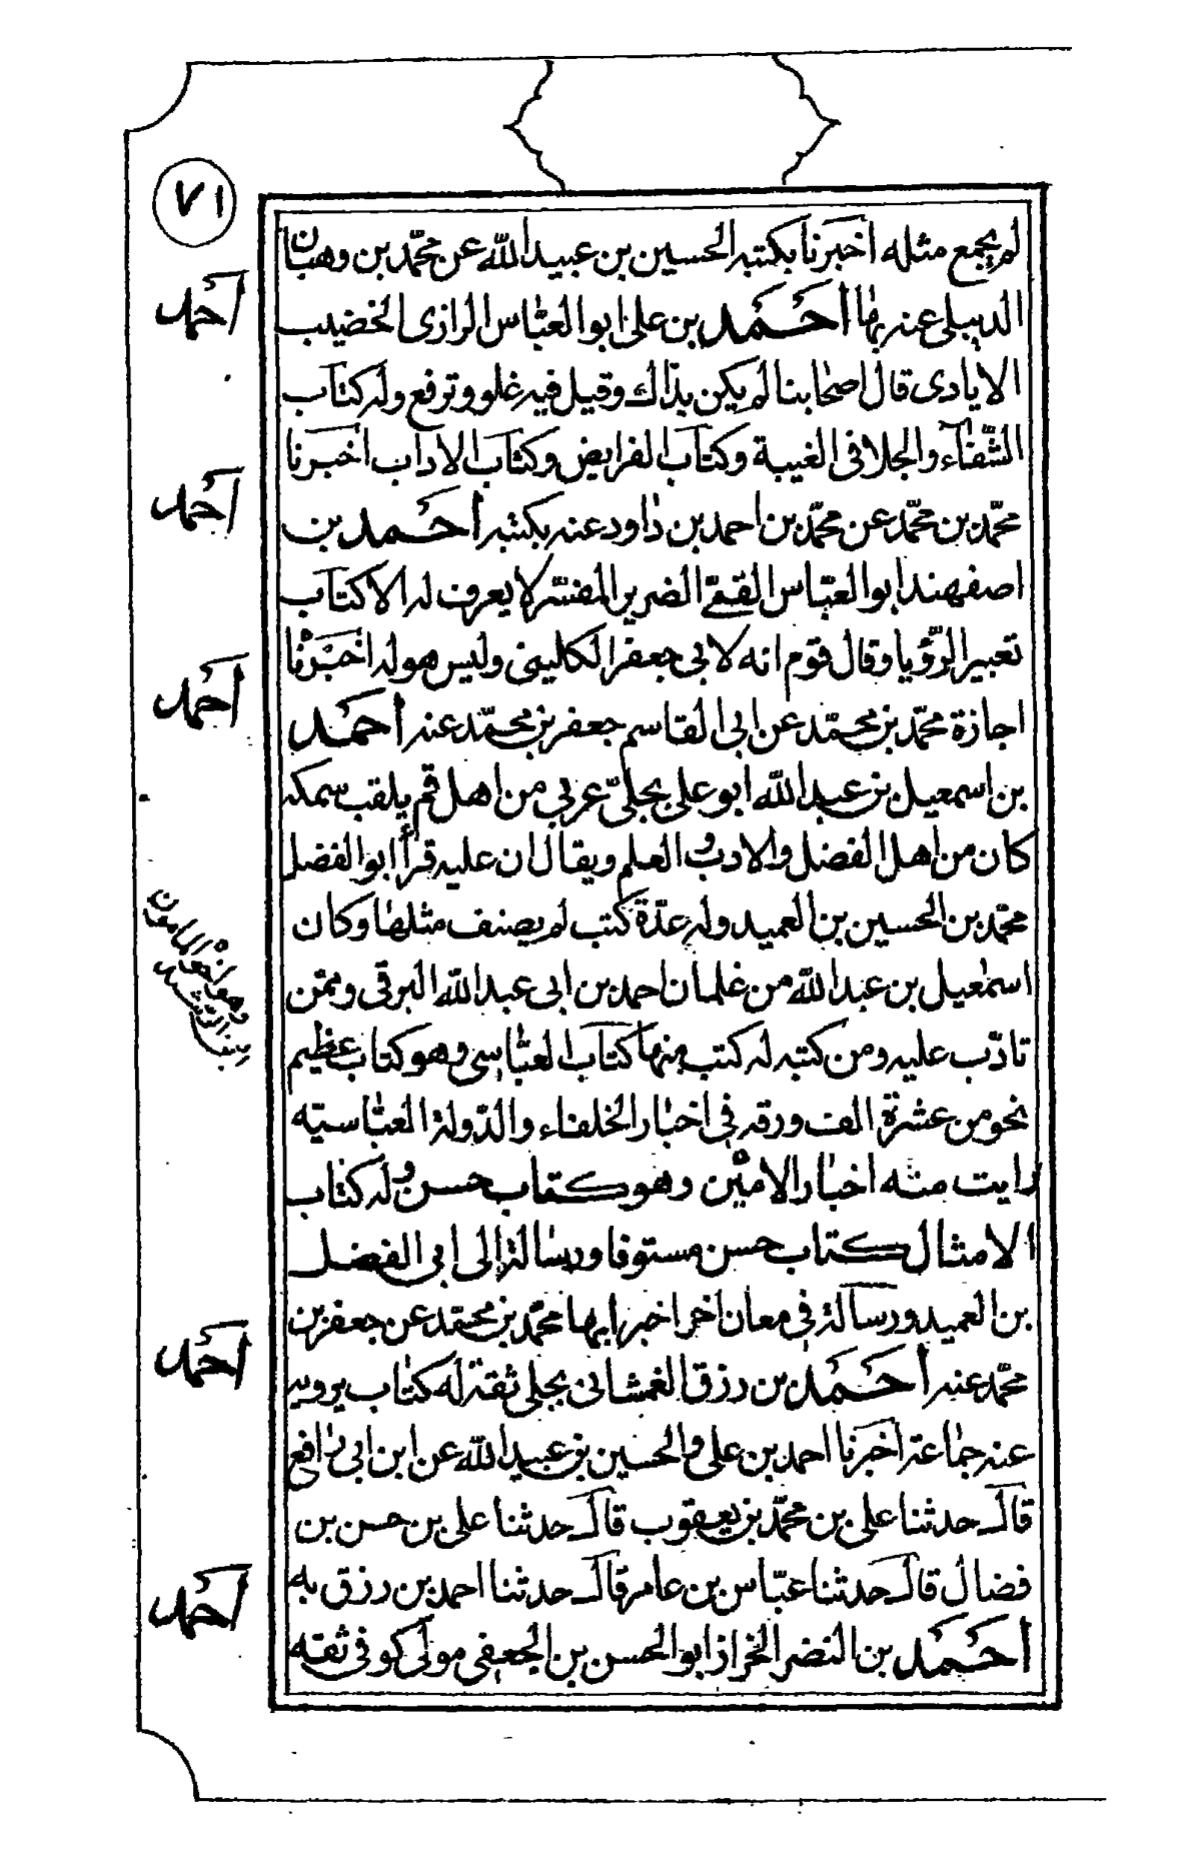 ٧١
لم يجمع مثله اخبرنا بكتبه الحسين بن عبيد الله عن محمّد بن وهبان
الدبيلى عنه بها أحمد بن على ابو العبّاس الرازى الخضيب
الايادى قال اصحابنا لم يكن بذاك وقيل فيه غلو وترفع وله كتاب
الشّفاء والجلا فى الغيبة وكتاب الفرايض وكتاب الاداب اخبرنا
محمّد بن محمّد عن محمّد بن احمد بن داود عنه بكتبه أحمد بن
اصفهند ابو العبّاس القمّى الضرير المفسّر لا يعرف له الا كتاب
تعبير الرّؤيا وقال قوم انه لابى جعفر الكلينى وليس هو له اخبرنا
اجازة محمّد بن محمّد عن ابى القاسم جعفر بن محمّد عنه أحمد
بن اسمعيل بن عبد الله ابو على بجلىّ عربى من اهل قم يلقب سمكه
كان من اهل الفضل والادب و العلم ويقال ان عليه قرأ ابو الفضل
محمّد بن الحسين بن العميد وله عدّة كتب لم يصنف مثلها وكان
اسمعيل بن عبد الله من غلمان احمد بن ابى عبد الله البرقى وممّن
تادّب عليه ومن كتبه له كتب منها كتاب العبّاسى وهو كتاب عظيم
نحو من عشرة الف ورقه فى اخبار الخلفاء والدّولة العبّاسيّه
رايت منه اخبار الامين وهو كتاب حسن وله كتاب
الامثال كتاب حسن مستوفا ورسالة إلى ابى الفضل
بن العميد ورسالة فى معان اخر اخبرنا بها محمّد بن محمّد عن جعفر بن
محمّد عنه أحمد بن رزق الغمشانى بجلى ثقة له كتاب يرويه
عنه جماعة اخبرنا احمد بن على والحسين بن عبيد الله عن ابن ابى رافع
قال حدثنا على بن محمّد بن يعقوب قال حدثنا على بن حسن بن
فضال قال حدثنا عبّاس بن عامر قال حدثنا احمد بن رزق به
أحمد بن النضر الخزاز ابو الحسن بن الجعفى مولى كوفى ثقه
أحمد
أحمد
أحمد
وهو اخو المامون
ابن الرشيد
أحمد
أحمد